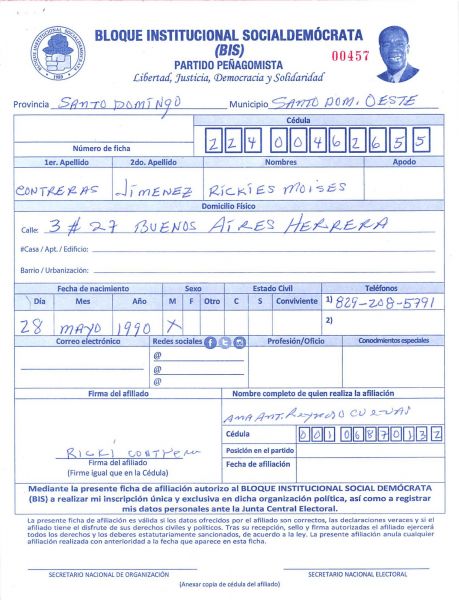 BLOQUE INSTITUCIONAL SOCIALDEMÓCRATA
(BIS)
00457
PARTIDO PEÑAGOMISTA
Libertad, Justicia, Democracia y Solidaridad
BLOQUE INSTITUCIONAL SOCIALDEMOCRATA
Provincia SANTO DOMINGO Municipio SANTO DOM. OESTE
Cédula
Número de ficha 224 0046265 5
1er. Apellido 2do. Apellido Nombres Apodo
CONTRERAS JIMENEZ RICKIES MOISES
Domicilio Físico
Calle: 3 # 27 BUENOS AIRES HERRERA
#Casa / Apt. / Edificio:
Barrio / Urbanización:
Fecha de nacimiento Sexo Estado Civil Teléfonos
Día Mes Año M F Otro C S Conviviente 1) 829-208-5791
28 MAYO 1990 X 2)
Correo electrónico Redes sociales Profesión/Oficio Conocimientos especiales
@
@
@
Firma del afiliado Nombre completo de quien realiza la afiliación
ANA ANT. Reynoso CUEVAS
Cédula 001 0687013 2
Posición en el partido
RICKI
Firma del afiliado
Fecha de afiliación
(Firme igual que en la Cédula)
Mediante la presente ficha de afiliación autorizo al BLOQUE INSTITUCIONAL SOCIAL DEMÓCRATA
(BIS) a realizar mi inscripción única y exclusiva en dicha organización política, así como a registrar
mis datos personales ante la Junta Central Electoral.
La presente ficha de afiliación es válida si los datos ofrecidos por el afiliado son correctos, las declaraciones veraces y si el
afiliado tiene el disfrute de sus derechos civiles y políticos. Tras su recepción, sello y firma autorizadas el afiliado ejercerá
todos los derechos y los deberes estatutariamente sancionados, de acuerdo a la ley. La presente afiliación anula cualquier
afiliación realizada con anterioridad a la fecha que aparece en esta ficha.
SECRETARIO NACIONAL DE ORGANIZACIÓN SECRETARIO NACIONAL ELECTORAL
(Anexar copia de cédula del afiliado)